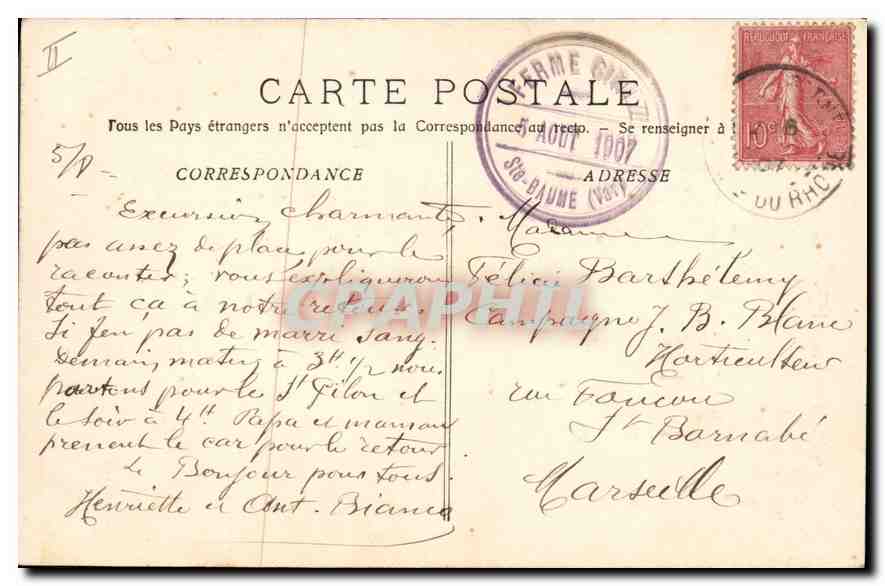 II
CARTE POSTALE
Tous les Pays étrangers n'acceptent pas la Correspondance au recto. - Se renseigner à
FERME GINI II
5 AOUT 1907
Ste-BAUME (Var)
REPUBLIQUE FRANÇAISE
10c
DU RHONE
5/8
CORRESPONDANCE
Excursion charmante,
pas assez de place pour le
raconter; vous expliquerons
tout ça à notre retour.
Si jen' pas de marri sang.
Demain mating à 3H 1/2 nous
partons pour le St Pilon et
le soir à 4H Papa et maman
prenent le car pour le retour
Le Bonjour pour tous.
Henriette et Ant. Bianco
ADRESSE
Madame
Félicie Barthélemy
Campagne J. B. Blanc
Horticulteur
rue
St Barnabé
Marseille
CPAPHIL